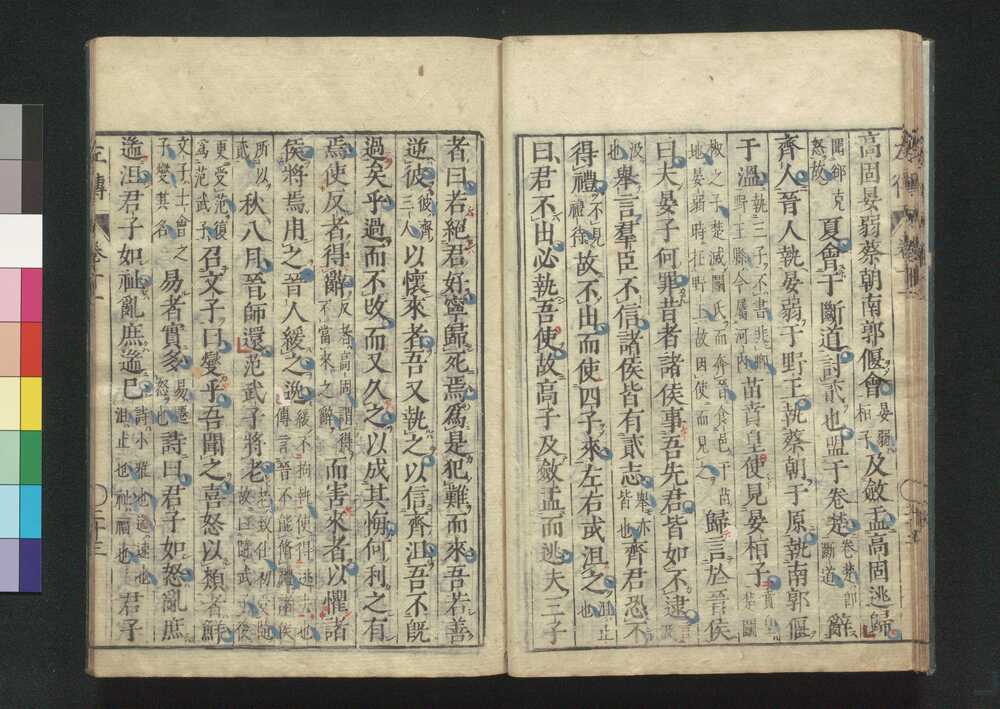 高固晏弱蔡朝南郭偃會晏弱桓子及斂盂高固逃歸
聞郤克怒故夏會于斷道討貳也盟于卷楚卷楚即斷道辭
齊人晉人執晏弱于野王執蔡朝于原執南郭偃
于溫執三子不書非卿野王縣今屬河内苗賁皇使見晏桓子賁皇楚鬬
椒之子楚滅鬬氏而奔晉食邑于苗地晏弱時在野上故因使而見之歸言於晉侯
曰夫晏子何罪昔者諸侯事吾先君皆如不逮言汲
汲也舉言羣臣不信諸侯皆有貳志舉亦皆也齊君恐不
得禮不見禮待故不出而使四子來左右或沮之沮止也
曰君不出必執吾使故高子及斂盂而逃夫三子
者曰若絕君好寧歸死焉爲是犯難而來吾若善
逆彼彼齊三人以懷來者吾又執之以信齊沮吾不既
過矣乎過而不改而又久之以成其悔何利之有
焉使反者得辭反者高固謂得不當來之辭而害來者以懼諸
侯將焉用之晉人緩之逸緩不拘執使得逃去也傳言晉不能脩禮諸侯
所以貳秋八月晉師還范武子將老老致仕初受隨故曰隨武子後
更受范復爲范武子召文子曰燮乎吾聞之喜怒以類者鮮
文子士會之子燮其名易者實多易遷怒也詩曰君子如怒亂庶
遄沮君子如祉亂庶遄已詩小雅也遄速也沮止也祉福也君子
左傳 卷十一 〇二十三